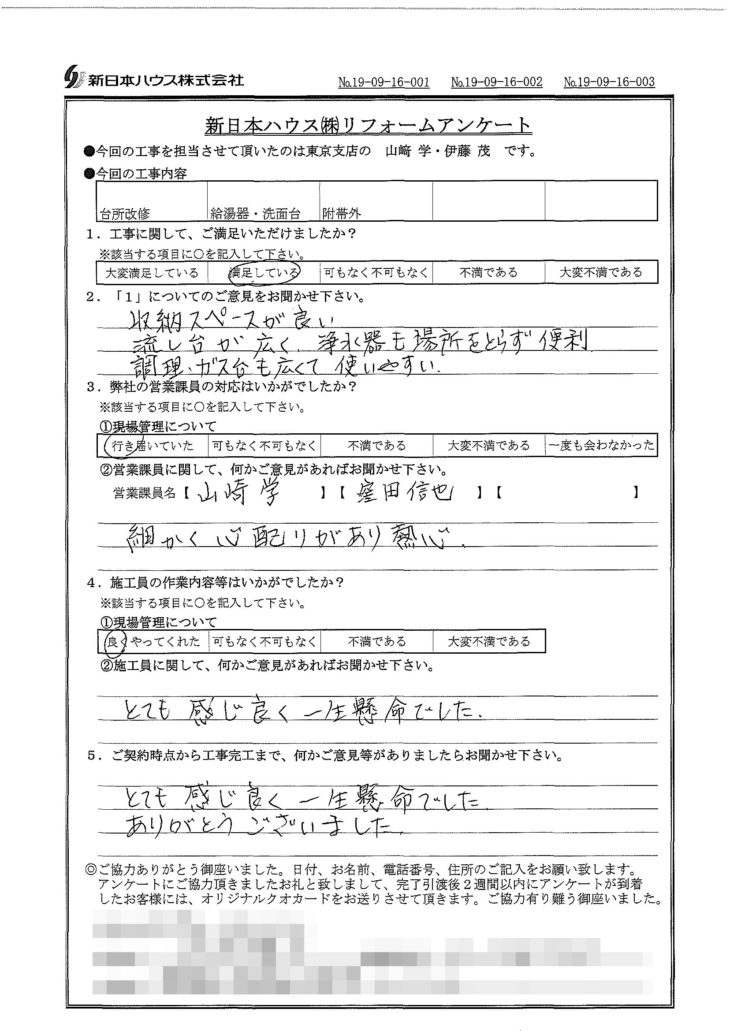 新日本ハウス株式会社
№19-09-16-001 №19-09-16-002 №19-09-16-003
新日本ハウス㈱リフォームアンケート
●今回の工事を担当させて頂いたのは東京支店の 山﨑 学・伊藤 茂 です。
●今回の工事内容
台所改修 給湯器・洗面台 附帯外
1．工事に関して、ご満足いただけましたか？
※該当する項目に○を記入して下さい。
大変満足している 満足している 可もなく不可もなく 不満である 大変不満である
2．「1」についてのご意見をお聞かせ下さい。
収納スペースが良い
流し台が広く、浄水器も場所をとらず便利
調理・ガス台も広くて使いやすい.
3．弊社の営業課員の対応はいかがでしたか？
※該当する項目に○を記入して下さい。
①現場管理について
行き届いていた 可もなく不可もなく 不満である 大変不満である 一度も会わなかった
②営業課員に関して、何かご意見があればお聞かせ下さい。
営業課員名【 山崎学 】【 窪田信也 】【 】
細かく心配りがあり熱心.
4．施工員の作業内容等はいかがでしたか？
※該当する項目に○を記入して下さい。
①現場管理について
良くやってくれた 可もなく不可もなく 不満である 大変不満である
②施工員に関して、何かご意見があればお聞かせ下さい。
とても感じ良く一生懸命でした.
5．ご契約時点から工事完工まで、何かご意見等がありましたらお聞かせ下さい。
とても感じ良く一生懸命でした.
ありがとうございました.
◎ご協力ありがとう御座いました。日付、お名前、電話番号、住所のご記入をお願い致します。
アンケートにご協力頂きましたお礼と致しまして、完了引渡後2週間以内にアンケートが到着
したお客様には、オリジナルクオカードをお送りさせて頂きます。ご協力有り難う御座いました。